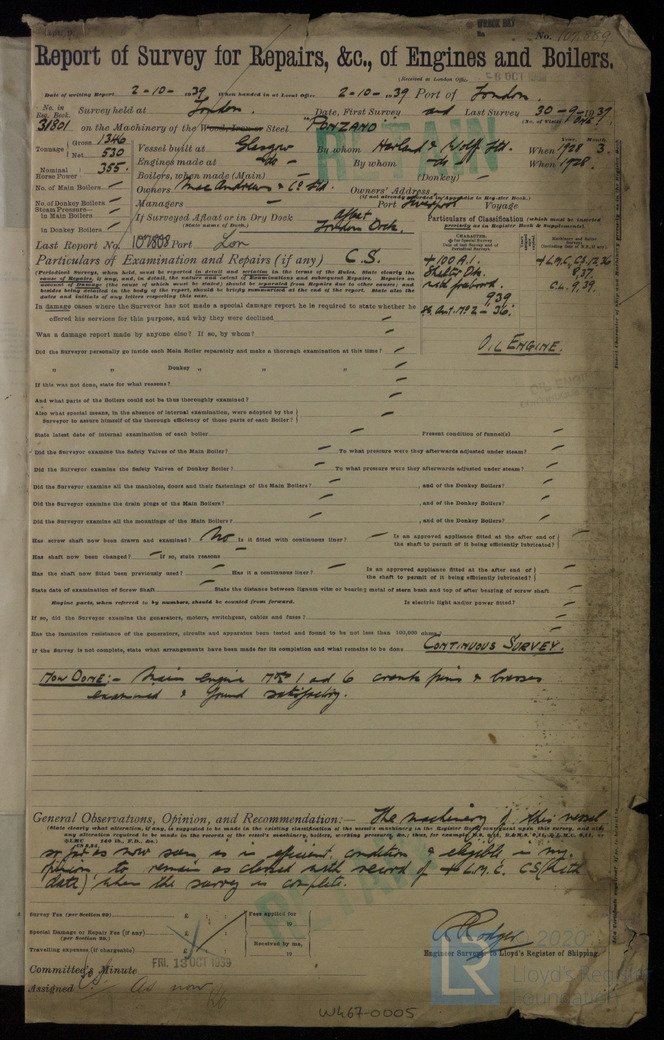 No. 107,889
Report of Survey for Repairs, &c., of Engines and Boilers.
(Received at London Office 6 OCT 1939
Date of writing Report 2-10-1939 When handed in at Local Office 2-10-1939 Port of London
No. in Reg. Book. Survey held at London. Date, First Survey and Last Survey 30-9-1939
31801 on the Machinery of the Wood, Iron or Steel "PONZANO" (No. of Visits One)
Tonnage Gross 1346 Vessel built at Glasgow By whom Harland & Wolff Ltd. When 1928 Year. Month. 3.
Net 530 Engines made at -do- By whom -do- When 1928.
Nominal Horse Power 355. Boilers, when made (Main) (Donkey)
No. of Main Boilers Owners MacAndrews & Co Ltd. Owners' Address
(if not already recorded in Appendix to Register Book.)
No. of Donkey Boilers Managers Port Liverpool Voyage
Steam Pressure—
in Main Boilers If Surveyed Afloat or in Dry Dock Afloat
in Donkey Boilers (State name of Dock.) London Dock.
Particulars of Classification (which must be inserted precisely as in Register Book & Supplements).
Last Report No. 107808 Port Lon
Particulars of Examination and Repairs (if any) C.S.
+100 A.1.
Shelter Dk.
with freeboard.
9.39
+L.M.C. CS
8.37.
C.L. 9.39.
OIL ENGINE.
In damage cases where the Surveyor has not made a special damage report he is required to state whether he
offered his services for this purpose, and why they were declined
Was a damage report made by anyone else? If so, by whom?
Did the Surveyor personally go inside each Main Boiler separately and make a thorough examination at this time?
" " Donkey " " "
If this was not done, state for what reasons?
And what parts of the Boilers could not be thus thoroughly examined?
Also what special means, in the absence of internal examination, were adopted by the
Surveyor to assure himself of the thorough efficiency of those parts of each Boiler?
State latest date of internal examination of each boiler Present condition of funnel(s)
Did the Surveyor examine the Safety Valves of the Main Boiler? To what pressure were they afterwards adjusted under steam?
Did the Surveyor examine the Safety Valves of Donkey Boiler? To what pressure were they afterwards adjusted under steam?
Did the Surveyor examine all the manholes, doors and their fastenings of the Main Boilers? , and of the Donkey Boilers?
Did the Surveyor examine the drain plugs of the Main Boilers? , and of the Donkey Boilers?
Did the Surveyor examine all the mountings of the Main Boilers? , and of the Donkey Boilers?
Has screw shaft now been drawn and examined? No Is it fitted with continuous liner? Is an approved appliance fitted at the after end of
the shaft to permit of it being efficiently lubricated?
Has shaft now been changed? If so, state reasons
Has the shaft now fitted been previously used? Has it a continuous liner? Is an approved appliance fitted at the after end of
the shaft to permit of it being efficiently lubricated?
State date of examination of Screw Shaft State the distance between lignum vitæ or bearing metal of stern bush and top of after bearing of screw shaft
Engine parts, when referred to by numbers, should be counted from forward. Is electric light and/or power fitted?
If so, did the Surveyor examine the generators, motors, switchgear, cables and fuses?
Has the insulation resistance of the generators, circuits and apparatus been tested and found to be not less than 100,000 ohms?
If the Survey is not complete, state what arrangements have been made for its completion and what remains to be done CONTINUOUS SURVEY.
NOW DONE:- Main engine Nos 1 and 6 crank pins & brasses
examined & found satisfactory.
General Observations, Opinion, and Recommendation:— The machinery of this vessel
so far as now seen is in efficient condition & eligible in my
opinion to remain as classed with record of +L.M.C. CS (with
date) when the survey is complete.
Survey Fee (per Section 29) £ Fees applied for
Special Damage or Repair Fee (if any) £
(per Section 29.)
Received by me,
Travelling expenses (if chargeable) £
Engineer Surveyor to Lloyd's Register of Shipping.
Committee's Minute FRI. 13 OCT 1939
Assigned As now
RETAIN
RETAIN
© 2020
Lloyd's Register
Foundation
LR
W467-0005